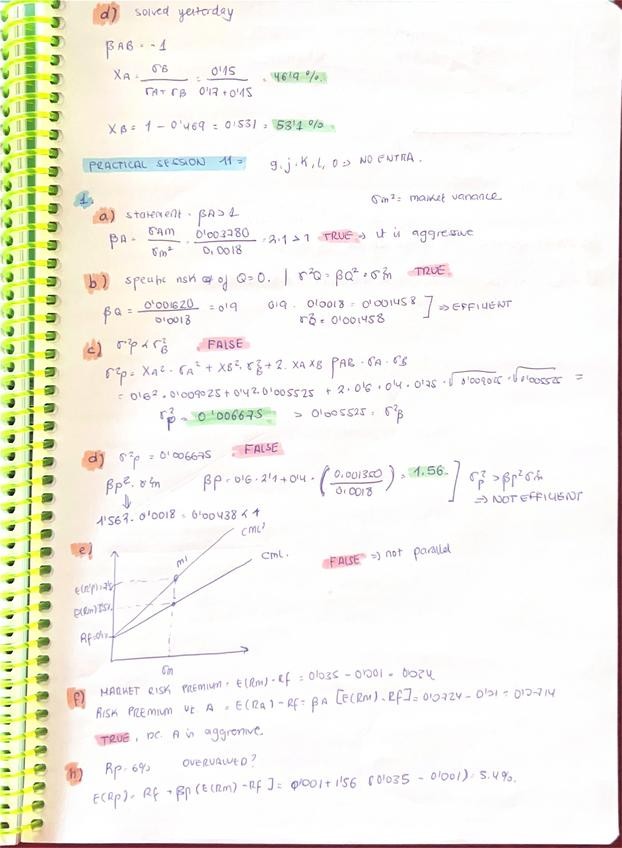 d) solved yesterday
βAB = -1
XA = σB / σA + σB = 0'15 / 0'17 + 0'15 = 46'9 %
XB = 1 - 0'469 = 0'531 = 53'1 %
PRACTICAL SESSION 11 = g, j, k, l, o => NO ENTRA.
1. σm² = market variance
a) statement · βA > 1
βA = σAm / σm² · 0'003780 / 0,0018 = 2·1 > 1 TRUE => it is aggressive
b) specific risk of Q = 0. | σ²Q = βQ² · σ²m TRUE
βQ = 0'001620 / 0'0018 = 0'9 0'9 · 0'0018 = 0'001458 ] => EFFICIENT
σ²Q = 0'001458
c) σ²p < σ²B . FALSE
σ²p = XA² · σA² + XB² · σ²B + 2 · XA XB ρAB · σA · σB
= 0'6² · 0'009025 + 0'4² 0'005525 + 2 · 0'6 · 0'4 · 0'75 · √0'009025 · √0'005525 =
σ²p = 0'006675 > 0'005525 = σ²B
d) σ²p = 0'006675 . FALSE
βp² · σ²m βp = 0'6 · 2'1 + 0'4 · (0.001350 / 0,0018) = 1.56. ] σ²p > βp² σ²m
=> NOT EFFICIENT
1'56² · 0'0018 = 0'00438 < 1
e) CML'
M' CML.
FALSE => not parallel
σm
f) MARKET RISK PREMIUM = E(Rm) - Rf = 0'035 - 0'001 = 0'024
RISK PREMIUM A = E(RA) - Rf = βA [E(Rm) - Rf] =
TRUE, A is aggressive.
h) Rp = 6% OVERVALUED?
E(Rp) = Rf + βp (E(Rm) - Rf] = 0'001 + 1'56 (0'035 - 0'001) = 5.4%.